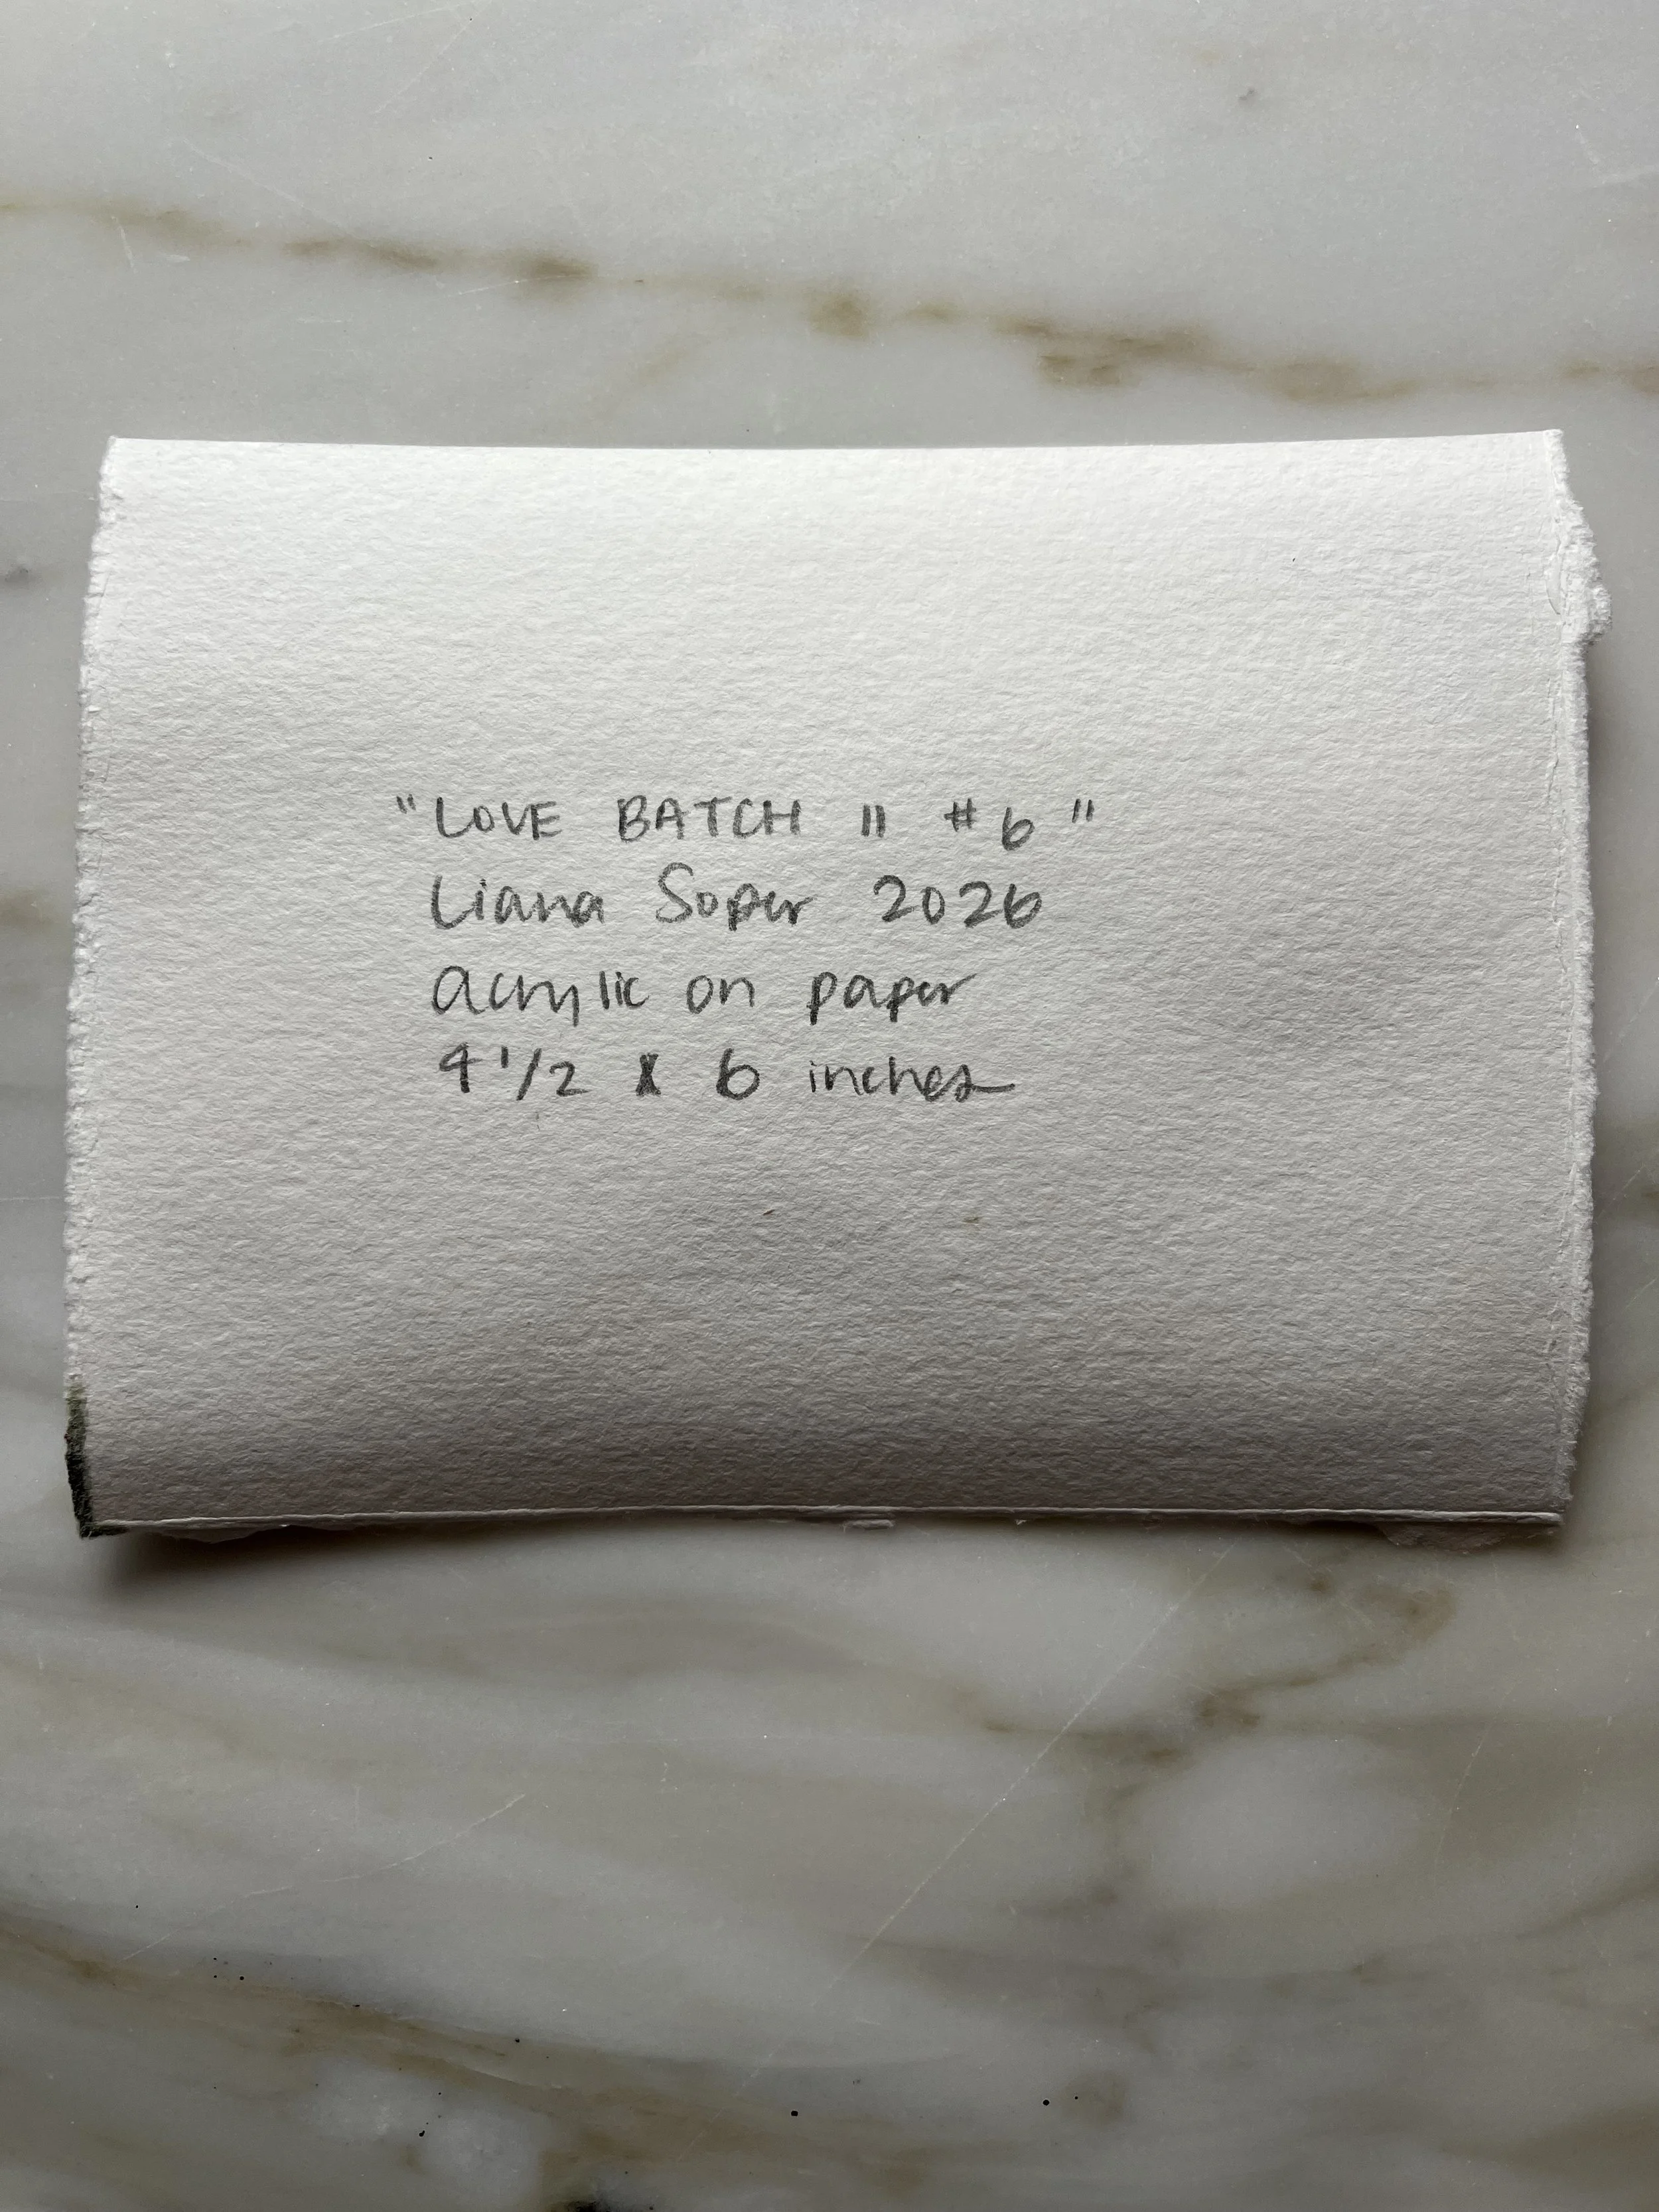 "LOVE BATCH II #6"
Liana Soper 2026
acrylic on paper
4 1/2 x 6 inches